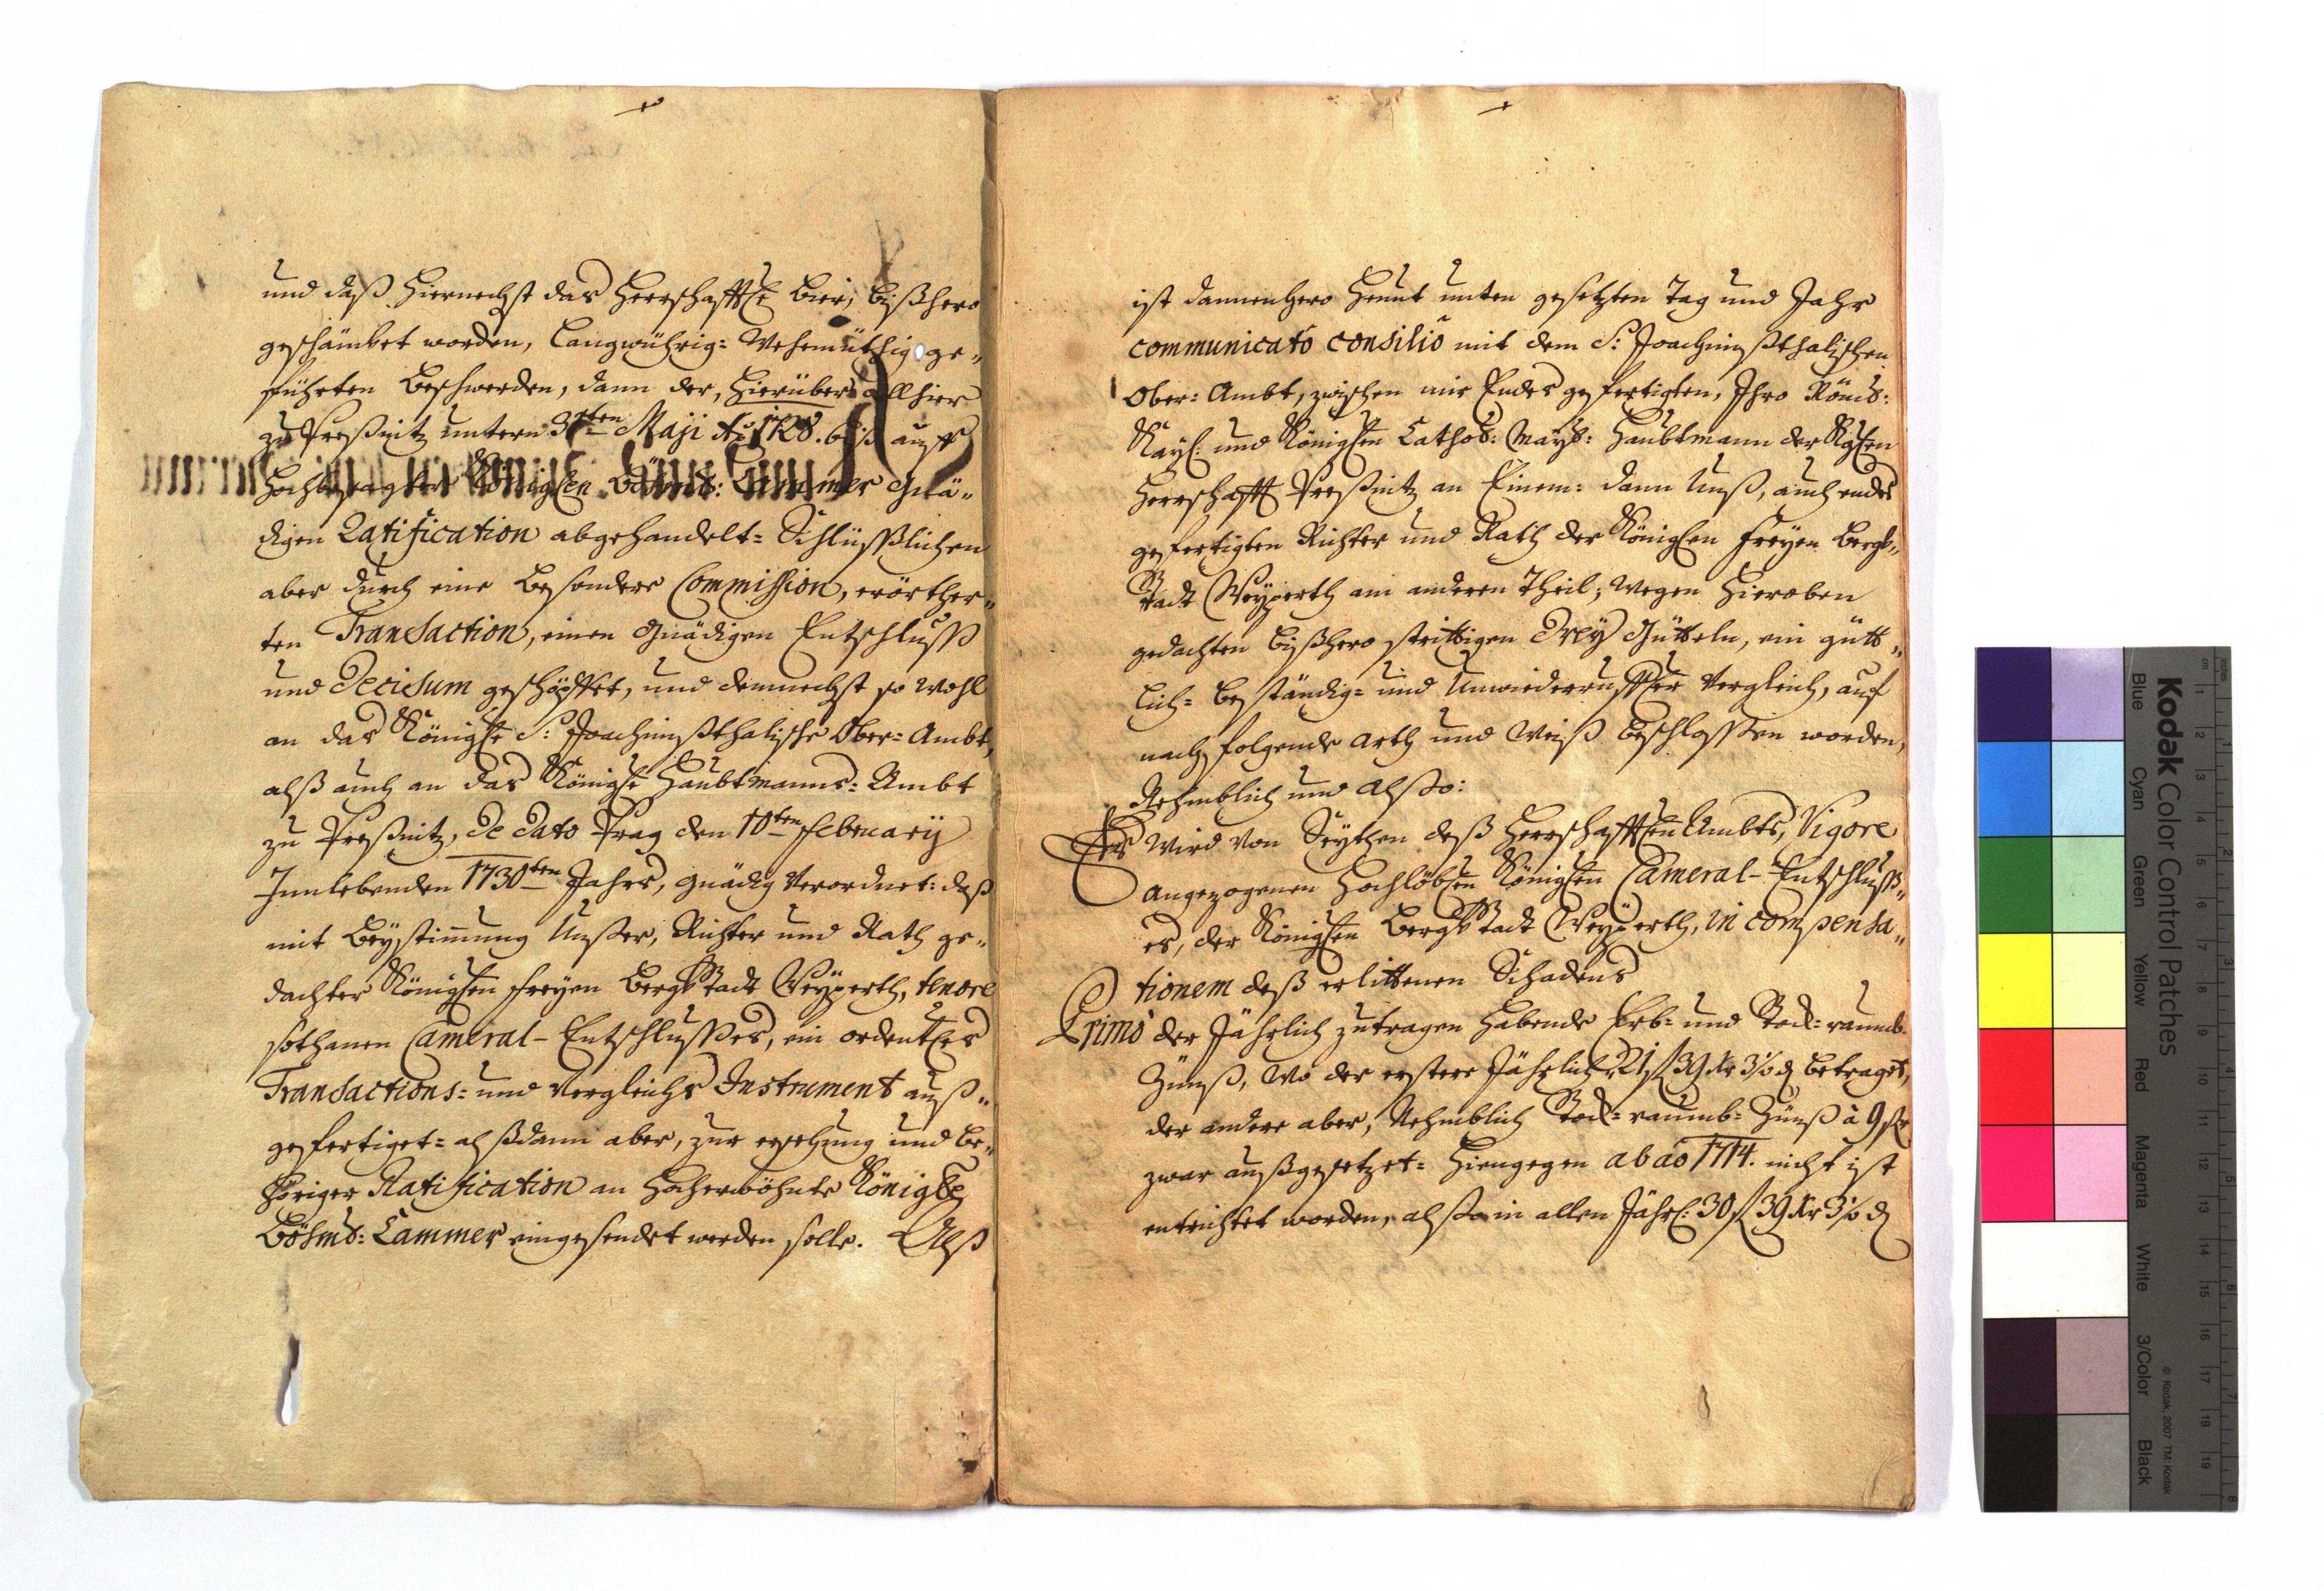 und daß hiernechst das Herrschafftle Bier, bißhero
geschämbet worden, langwührig= Wehemüthig ge„
führten Beschwerden, dann der, hierüber allhier
zu Preßnitz untern 3ten Maji Ao 1728. biß auff
Hochbesagter Königlen Böhmb: Cammer Gnä„
digen Ratification abgehandelt= Schlüßlichen
aber durch eine besondere Commission, erörther„
ten Transaction, einen Gnädigen Entschluss
und Decisum geschöpffet, und demnechst so wohl
an das Königle S: Joachimßthalische Ober=Ambt,
alß auch an das Königle Haubtmanns=Ambt
zu Preßnitz, De Dato Prag den 10ten February
Innlebenden 1730ten Jahrs, gnädig Verordnet: daß
mit Beystimung Unßer, Richter und Rath ge„
dachter Königlen freyen BergkStadt Weyperth, tenore
sothanen Cameral-Entschlusses, ein ordentles
Transactions= und Vergleichs Instrument auß„
gefertiget= alßdann aber, zur ersehung und be„
höriger Ratification an Hocherwöhnte Königle
Böhmb: Cammer eingesendet werden solle. Alß
ist dannenhero Heunt unten gesetzten Tag und Jahr
communicatô consiliô mit dem S: Joachimßthalischen
Ober=Ambt, zwischen mir Endes gefertigten, Ihro Römb:
Kayl: und Königlen Cathol: Mayt: Haubtmann der Kglen
Herrschafft Preßnitz an Einem= dann Unß, auch endes
gefertigten Richter und Rath der Königlen freyen Bergk„
Stadt Weyperth am anderen Theil; wegen hieroben
gedachten bißhero strittigen Drey Gütteln, ein gütt„
lich= beständig= und Unwiederruffler Vergleich, auf
nachfolgende arth und Weiß beschlossen worden,
Nehmblich und alsso:
Es wird von Seythen deß Herrschafftlen Ambts, Vigore
angezogenen Hochlöblen Königlen Cameral-Entschluß„
es, der Königlen BergkStadt Weyperth, in compensa„
tionem deß erlittenen Schadens
Primò der Jährlich zutragen habende Erb= und Stock=raumb=
Zünß, wo der erstere Jährlich 21 fl 39 Kr 3 ½ d betraget,
der andere aber, Nehmblich Stock=raumb=Zünß à 9 fl
zwar außgesetzet= hiengegen ab aô 1714. nicht ist
entrichtet worden, alsso in allen Jährl: 30 fl 39 Kr 3 ½ d
Kodak Color Control Patches
Blue Cyan Green Yellow Red Magenta White 3/Color Black
© Kodak, 2007 TM: Kodak